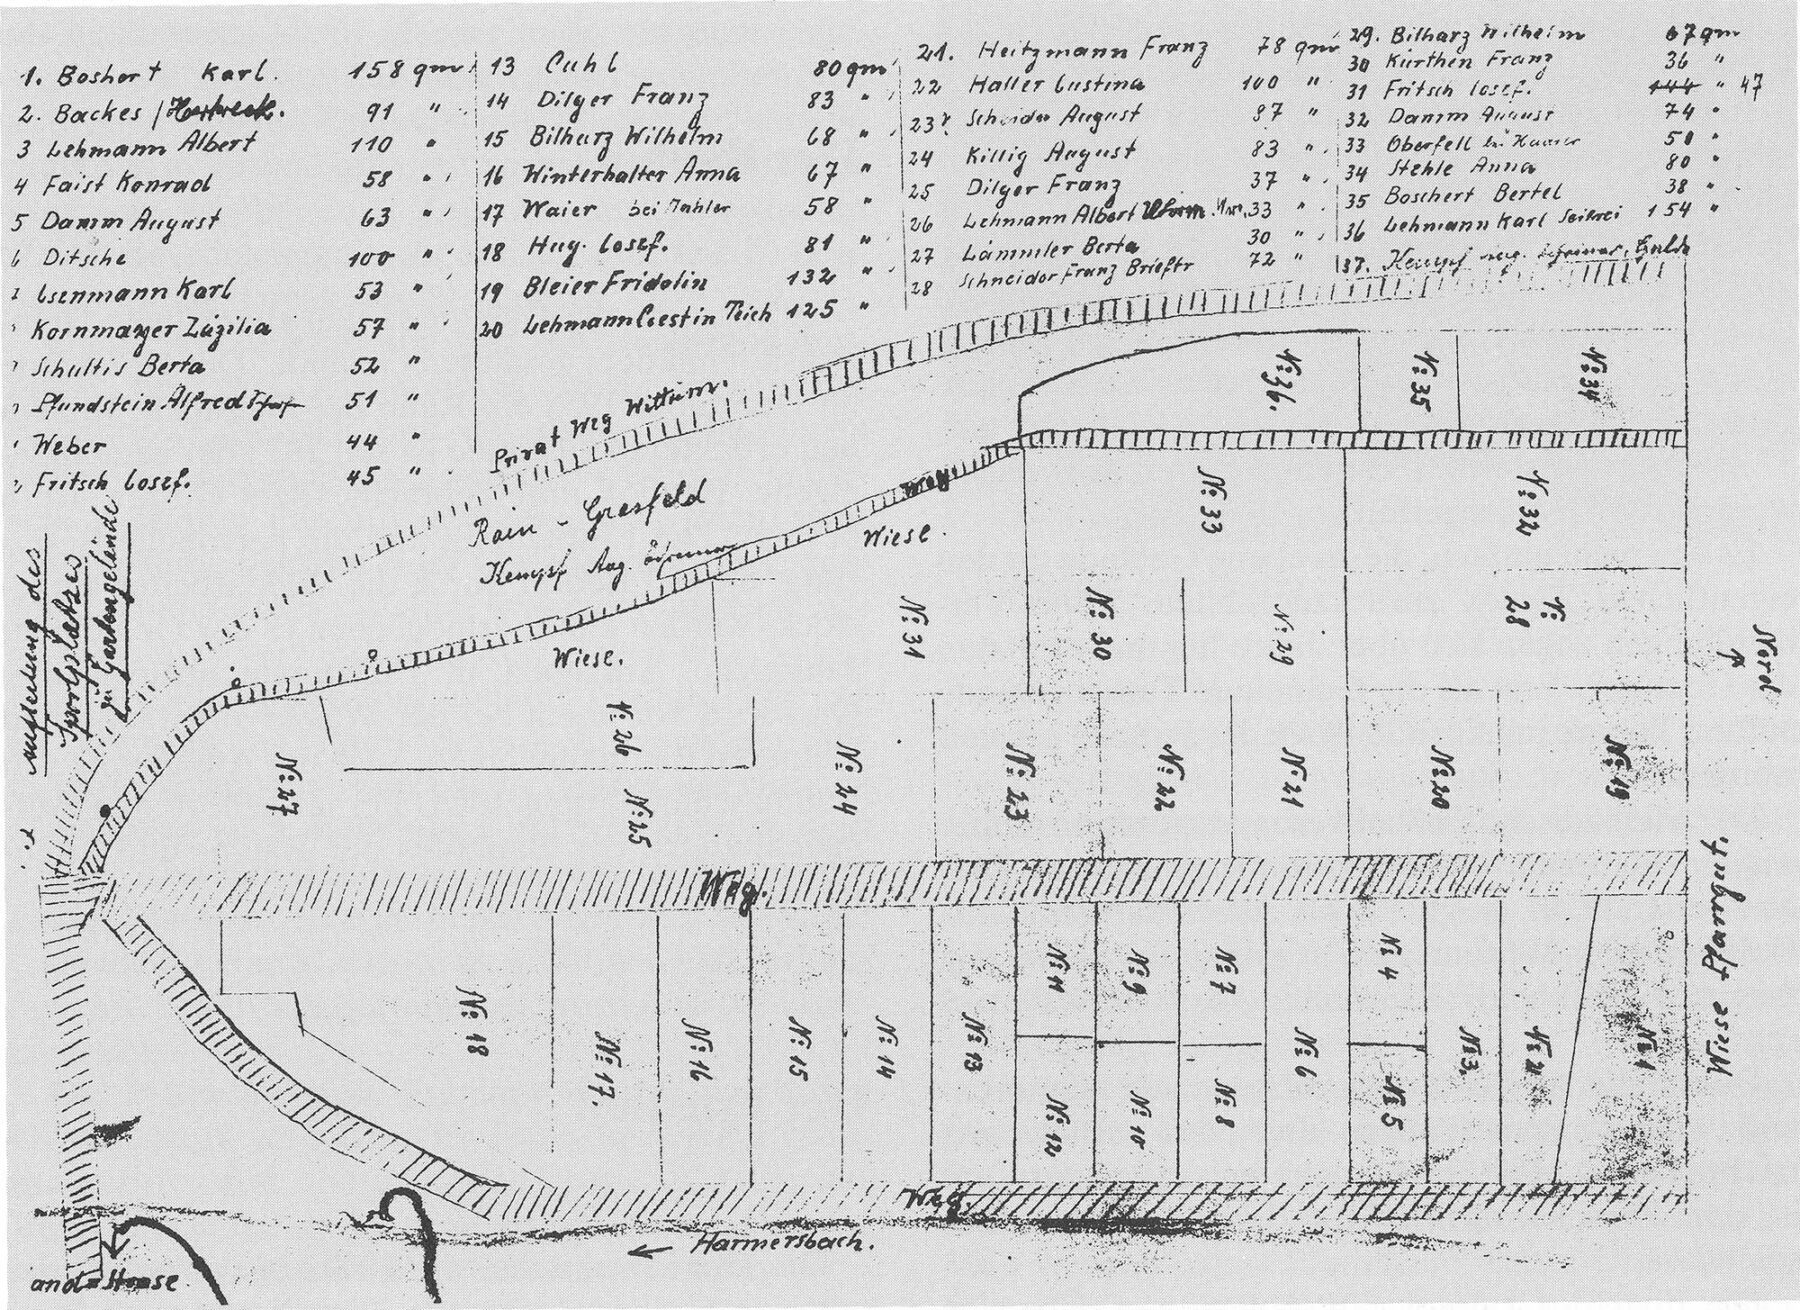 1. Boshert Karl. 158 qm
2. Backes / 91 "
3 Lehmann Albert 110 "
4 Faist Konrad 58 "
5 Damm August 63 "
6 Ditsche 100 "
Isenmann Karl 53 "
Kornmayer Züzilia 57 "
Schultis Berta 52 "
Pfundstein Alfred 51 "
Weber 44 "
Fritsch Josef. 45 "
13 Cuhl 80 qm
14 Dilger Franz 83 "
15 Bilharz Wilhelm 68 "
16 Winterhalter Anna 67 "
17 Waier bei Mahler 58 "
18 Hug. Josef. 81 "
19 Bleier Fridolin 132 "
20 Lehmann Teich 125 "
21. Heitzmann Franz 78 qm
22 Haller Justina 100 "
23 Schneider August 87 "
24 Killig August 83 "
25 Dilger Franz 37 "
26 Lehmann Albert 33 "
27 Lämmler Berta 30 "
28 Schneider Franz Brieftr 72 "
29. Bilharz Wilhelm 67 qm
30 Kürthen Franz 36 "
31 Fritsch Josef. 144 " 47
32 Damm August 74 "
33 Oberfell bei 50 "
34 Stehle Anna 80 "
35 Boschert Bertel 38 "
36 Lehmann Karl Seilerei 154 "
37. Kempf Aug. Schreiner,
Privat Weg Wittum.
Rain - Grasfeld
Kempf Aug.
Aufteilung des
Sportplatzes
zu Gartengelände
Weg
Wiese.
Wiese.
No 36.
No 35
No 34
No 33
No 32
No 31
No 30
No 29
No 28
No 27
No 26
No 25
No 24
No 23
No 22
No 21
No 20
No 19
Nord
Weg.
No 18
No 17.
No 16
No 15
No 14
No 13
No 11
No 12
No 9
No 10
No 7
No 8
No 6
No 4
No 5
No 3.
No 2
No 1
Wiese Pfarrgut.
Weg.
← Harmersbach.
and-Strase